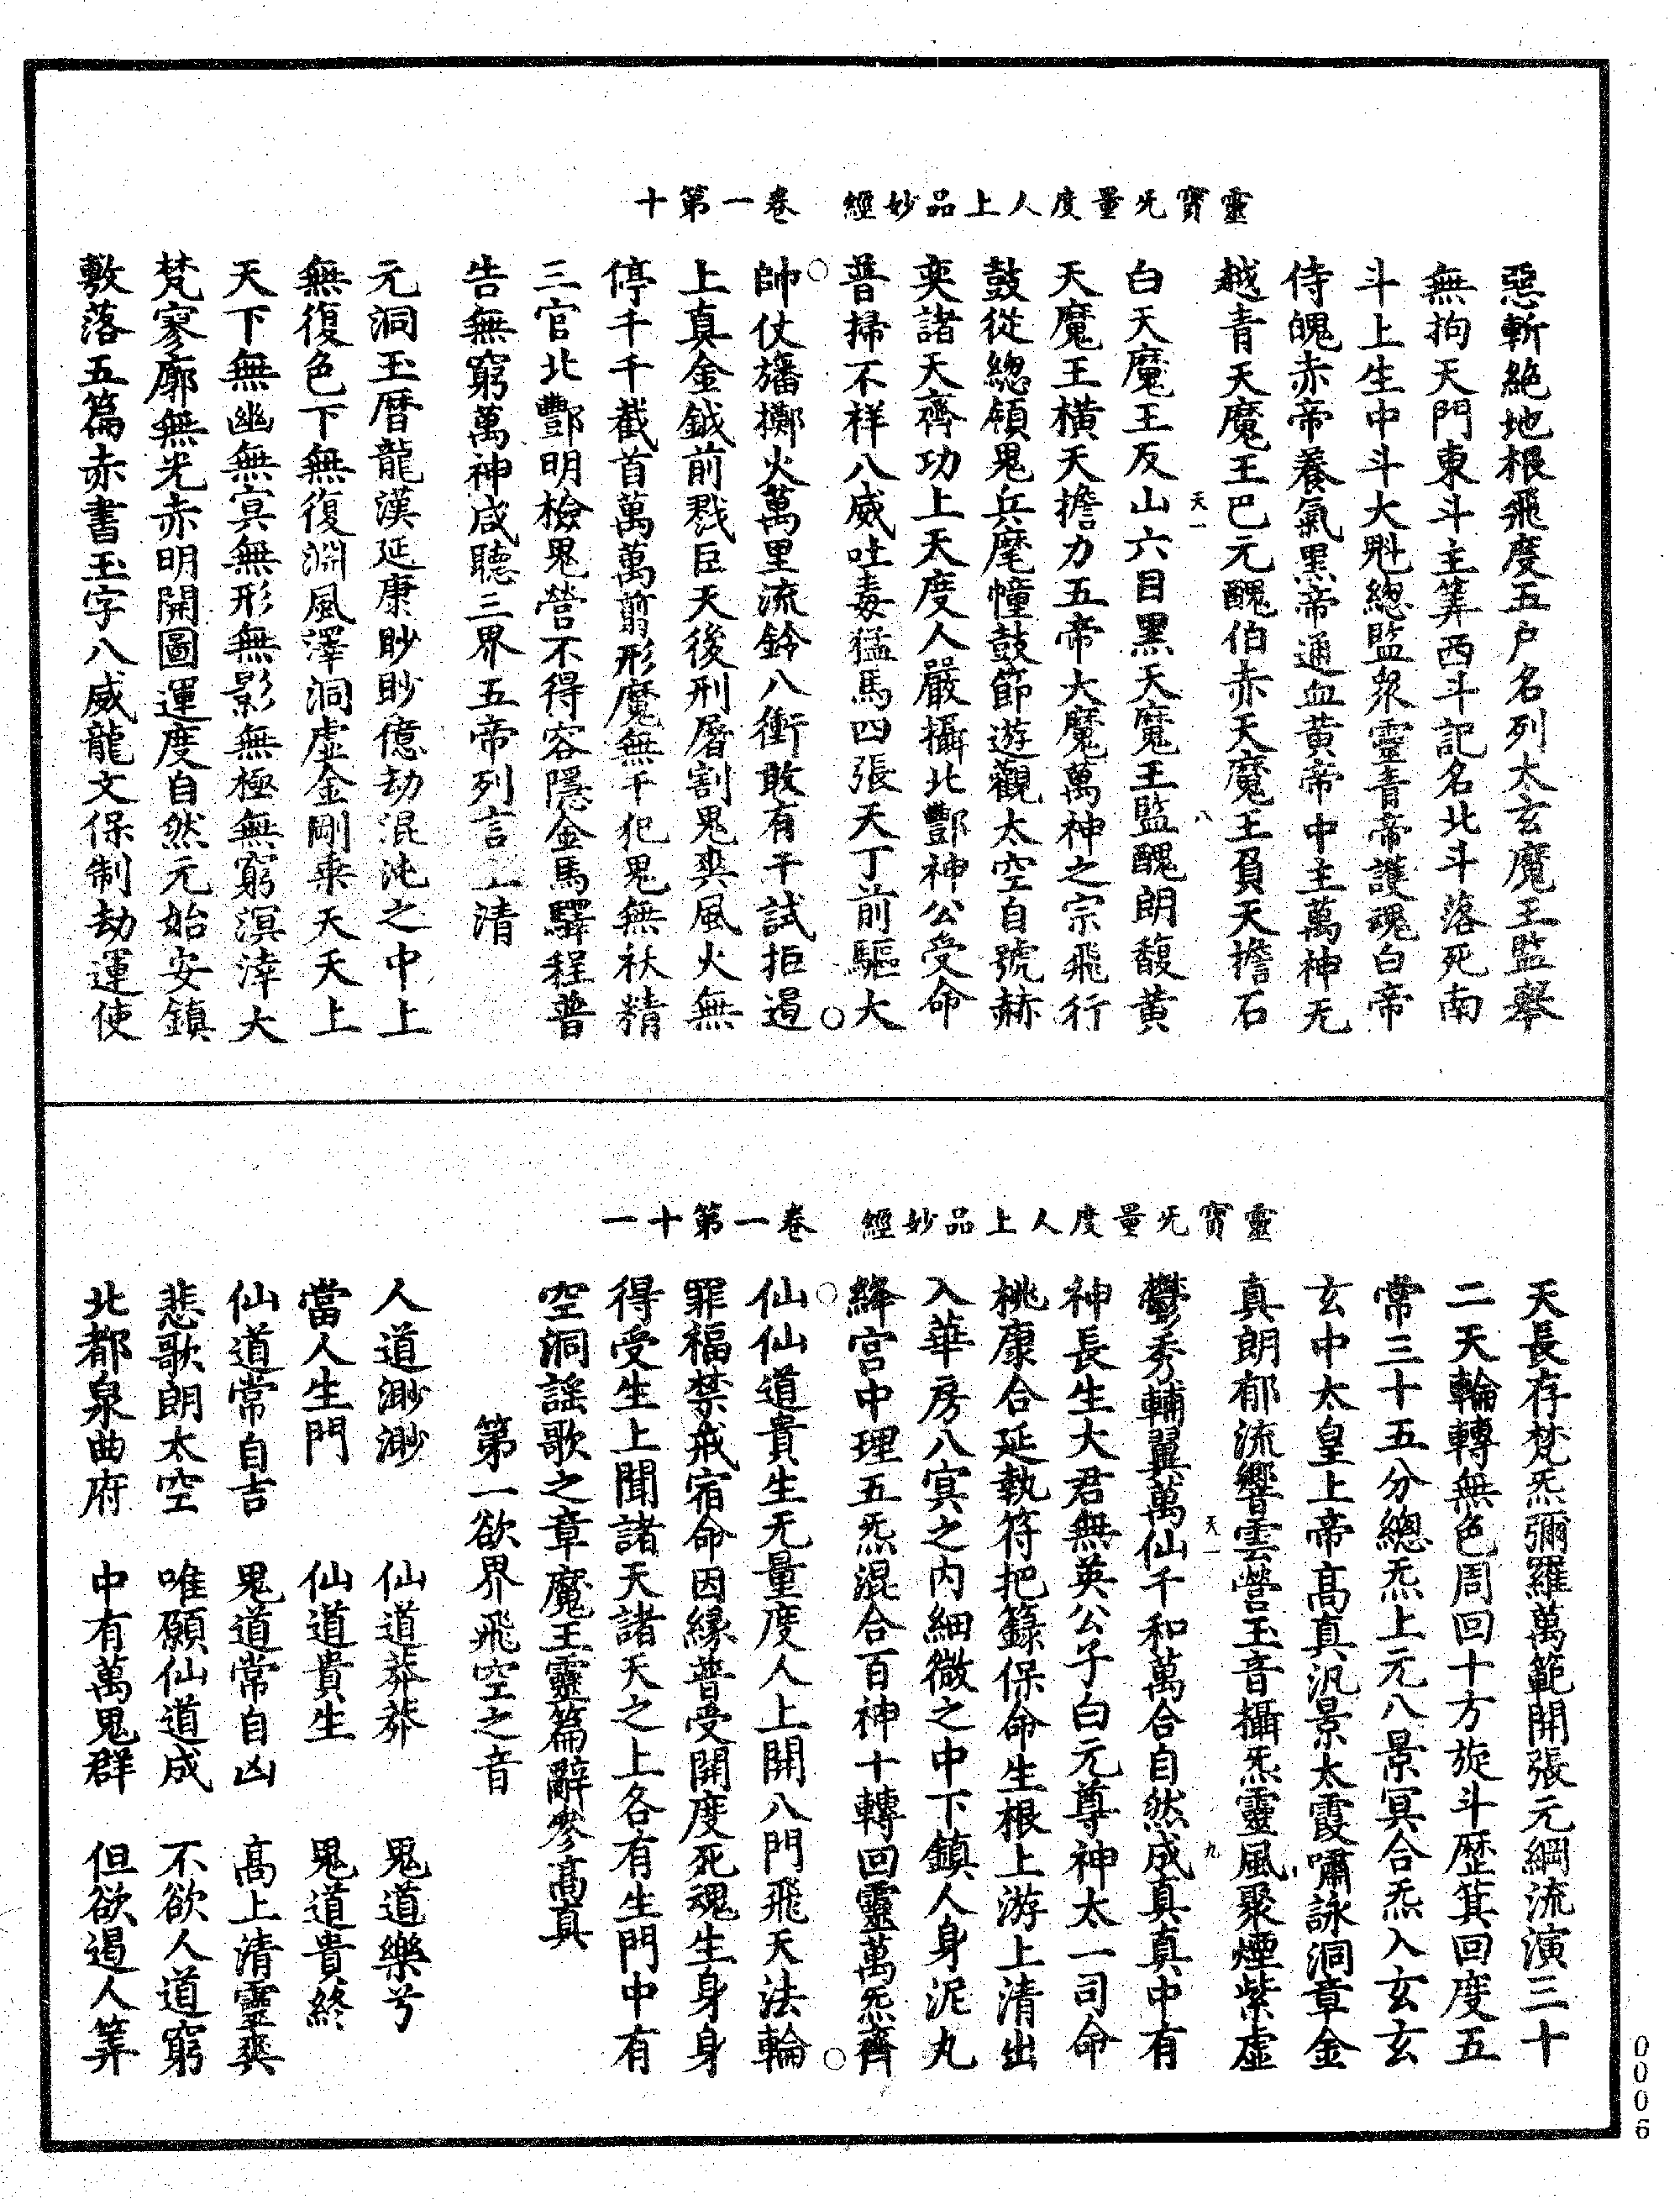 靈寶无量度人上品妙經　卷一第十
惡斬絕地根飛度五户名列太玄魔王監舉
無拘天門東斗主筭西斗記名北斗落死南
斗上生中斗大魁總監衆靈青帝護魂白帝
侍魄赤帝養氣黑帝通血黄帝中主萬神无
越青天魔王巴元醜伯赤天魔王負天擔石
天一　八
白天魔王反山六目黑天魔王監醜朗馥黄
天魔王横天擔力五帝大魔萬神之宗飛行
鼓從總領鬼兵麾幢鼓節遊觀太空自號赫
奕諸天齊功上天度人嚴攝北酆神公受命
普掃不祥八威吐毒猛馬四張天丁前驅大
帥仗旛擲火萬里流鈴八衝敢有干試拒遏
上真金鉞前戮巨天後刑屠割鬼爽風火無
停千千截首萬萬剪形魔無干犯鬼無袄精
三官北酆明檢鬼營不得容隱金馬驛程普
告無窮萬神咸聽三界五帝列言上清
元洞玉曆龍漢延康眇眇億劫混沌之中上
無復色下無復淵風澤洞虚金剛乘天天上
天下無幽無冥無形無影無極無窮溟涬大
梵寥廓無光赤明開圖運度自然元始安鎮
敷落五篇赤書玉字八威龍文保制劫運使
靈寶无量度人上品妙經　卷一第十一
天長存梵炁彌羅萬範開張元綱流演三十
二天輪轉無色周回十方旋斗歷箕回度五
常三十五分總炁上元八景冥合炁入玄玄
玄中太皇上帝高真汎景太霞嘯詠洞章金
真朗郁流響雲營玉音攝炁靈風聚煙紫虚
天一　九
鬱秀輔翼萬仙千和萬合自然成真真中有
神長生大君無英公子白元尊神太一司命
桃康合延執符把籙保命生根上游上清出
入華房八冥之内細微之中下鎮人身泥丸
絳宫中理五炁混合百神十轉回靈萬炁齊
仙仙道貴生无量度人上開八門飛天法輪
罪福禁戒宿命因緣普受開度死魂生身身
得受生上聞諸天諸天之上各有生門中有
空洞謡歌之章魔王靈篇辭參高真
第一欲界飛空之音
人道渺渺　仙道莽莽　鬼道樂兮
當人生門　仙道貴生　鬼道貴終
仙道常自吉　鬼道常自凶　高上清靈爽
悲歌朗太空　唯願仙道成　不欲人道窮
北都泉曲府　中有萬鬼群　但欲遏人筭
0006